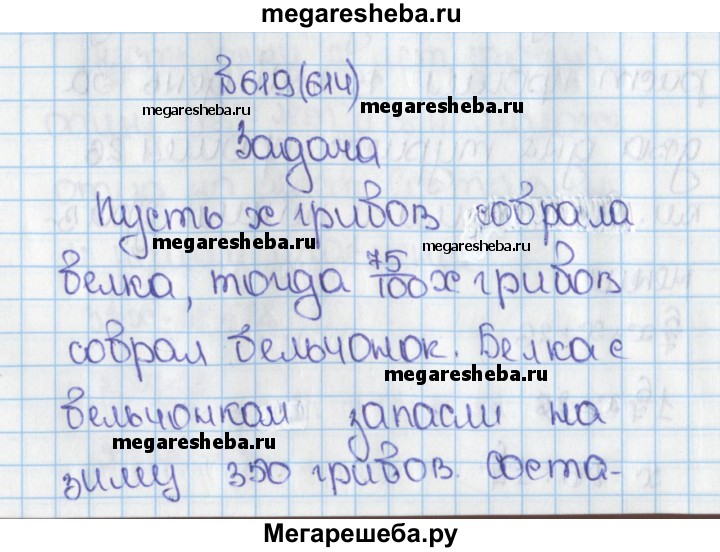 megaresheba.ru
№619(614)
megaresheba.ru megaresheba.ru
Задача
Пусть x грибов собрала
megaresheba.ru megaresheba.ru
белка, тогда 75/100 x грибов
собрал бельчонок. Белка с
megaresheba.ru
бельчонком запасли на
megaresheba.ru
зиму 350 грибов. Соста-
Мегарешеба.ру